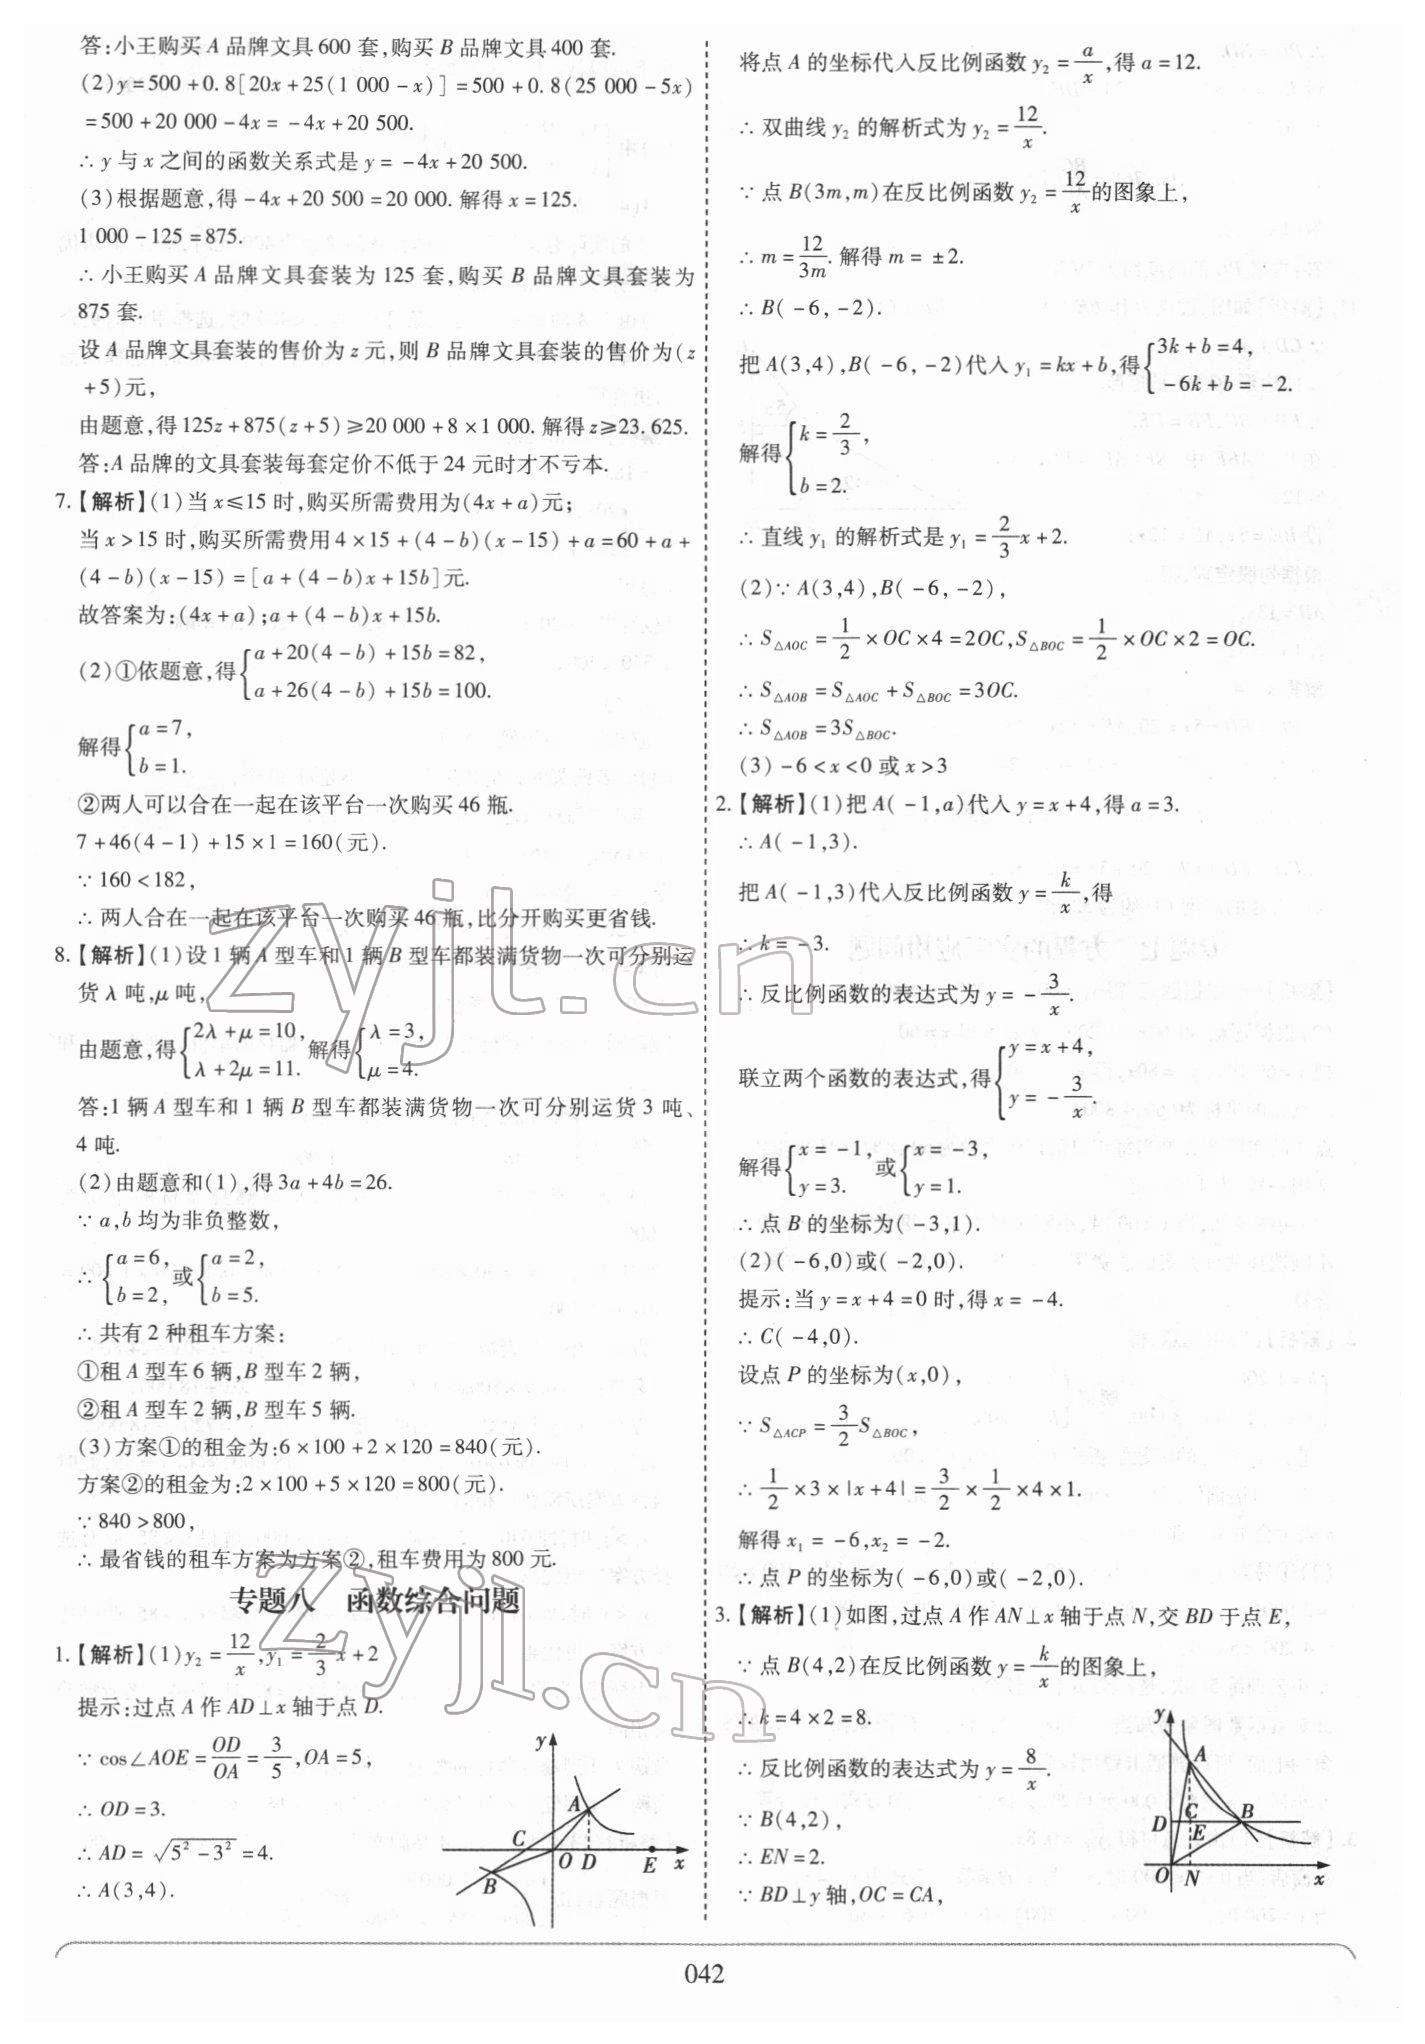 答:小王购买A品牌文具600套,购买B品牌文具400套.
(2)y=500+0.8[20x+25(1 000-x)]=500+0.8(25 000-5x)
=500+20 000-4x=-4x+20 500.
∴y与x之间的函数关系式是y=-4x+20 500.
(3)根据题意,得-4x+20 500=20 000.解得x=125.
1 000-125=875.
∴小王购买A品牌文具套装为125套,购买B品牌文具套装为
875套.
设A品牌文具套装的售价为z元,则B品牌文具套装的售价为(z
+5)元,
由题意,得125z+875(z+5)≥20 000+8×1 000.解得z≥23.625.
答:A品牌的文具套装每套定价不低于24元时才不亏本.
7.【解析】(1)当x≤15时,购买所需费用为(4x+a)元;
当x>15时,购买所需费用4×15+(4-b)(x-15)+a=60+a+
(4-b)(x-15)=[a+(4-b)x+15b]元.
故答案为:(4x+a);a+(4-b)x+15b.
(2)①依题意,得{a+20(4-b)+15b=82,
a+26(4-b)+15b=100.
解得{a=7,
b=1.
②两人可以合在一起在该平台一次购买46瓶.
7+46(4-1)+15×1=160(元).
∵160<182,
∴两人合在一起在该平台一次购买46瓶,比分开购买更省钱.
8.【解析】(1)设1辆A型车和1辆B型车都装满货物一次可分别运
货λ吨,μ吨,
由题意,得{2λ+μ=10, 解得{λ=3,
λ+2μ=11. μ=4.
答:1辆A型车和1辆B型车都装满货物一次可分别运货3吨、
4吨.
(2)由题意和(1),得3a+4b=26.
∵a,b均为非负整数,
∴{a=6, 或{a=2,
b=2, b=5.
∴共有2种租车方案:
①租A型车6辆,B型车2辆,
②租A型车2辆,B型车5辆.
(3)方案①的租金为:6×100+2×120=840(元).
方案②的租金为:2×100+5×120=800(元).
∵840>800,
∴最省钱的租车方案为方案②,租车费用为800元.
专题八 函数综合问题
1.【解析】(1)y₂=12/x,y₁=2/3x+2
提示:过点A作AD⊥x轴于点D.
∵cos∠AOE=OD/OA=3/5,OA=5,
∴OD=3.
∴AD=√(5²-3²)=4.
∴A(3,4).
y
A
C
O D E x
B
将点A的坐标代入反比例函数y₂=a/x,得a=12.
∴双曲线y₂的解析式为y₂=12/x.
∵点B(3m,m)在反比例函数y₂=12/x的图象上,
∴m=12/3m.解得m=±2.
∴B(-6,-2).
把A(3,4),B(-6,-2)代入y₁=kx+b,得{3k+b=4,
-6k+b=-2.
解得{k=2/3,
b=2.
∴直线y₁的解析式是y₁=2/3x+2.
(2)∵A(3,4),B(-6,-2),
∴S△AOC=1/2×OC×4=2OC,S△BOC=1/2×OC×2=OC.
∴S△AOB=S△AOC+S△BOC=3OC.
∴S△AOB=3S△BOC.
(3)-6<x<0或x>3
2.【解析】(1)把A(-1,a)代入y=x+4,得a=3.
∴A(-1,3).
把A(-1,3)代入反比例函数y=k/x,得
∴k=-3.
∴反比例函数的表达式为y=-3/x.
联立两个函数的表达式,得{y=x+4,
y=-3/x.
解得{x=-1, 或{x=-3,
y=3. y=1.
∴点B的坐标为(-3,1).
(2)(-6,0)或(-2,0).
提示:当y=x+4=0时,得x=-4.
∴C(-4,0).
设点P的坐标为(x,0),
∵S△ACP=3/2S△BOC,
∴1/2×3×|x+4|=3/2×1/2×4×1.
解得x₁=-6,x₂=-2.
∴点P的坐标为(-6,0)或(-2,0).
3.【解析】(1)如图,过点A作AN⊥x轴于点N,交BD于点E,
∵点B(4,2)在反比例函数y=k/x的图象上,
∴k=4×2=8.
∴反比例函数的表达式为y=8/x.
∵B(4,2),
∴EN=2.
∵BD⊥y轴,OC=CA,
y
A
D C B
E
O N x
042
zyjl.cn
zyjl.cn